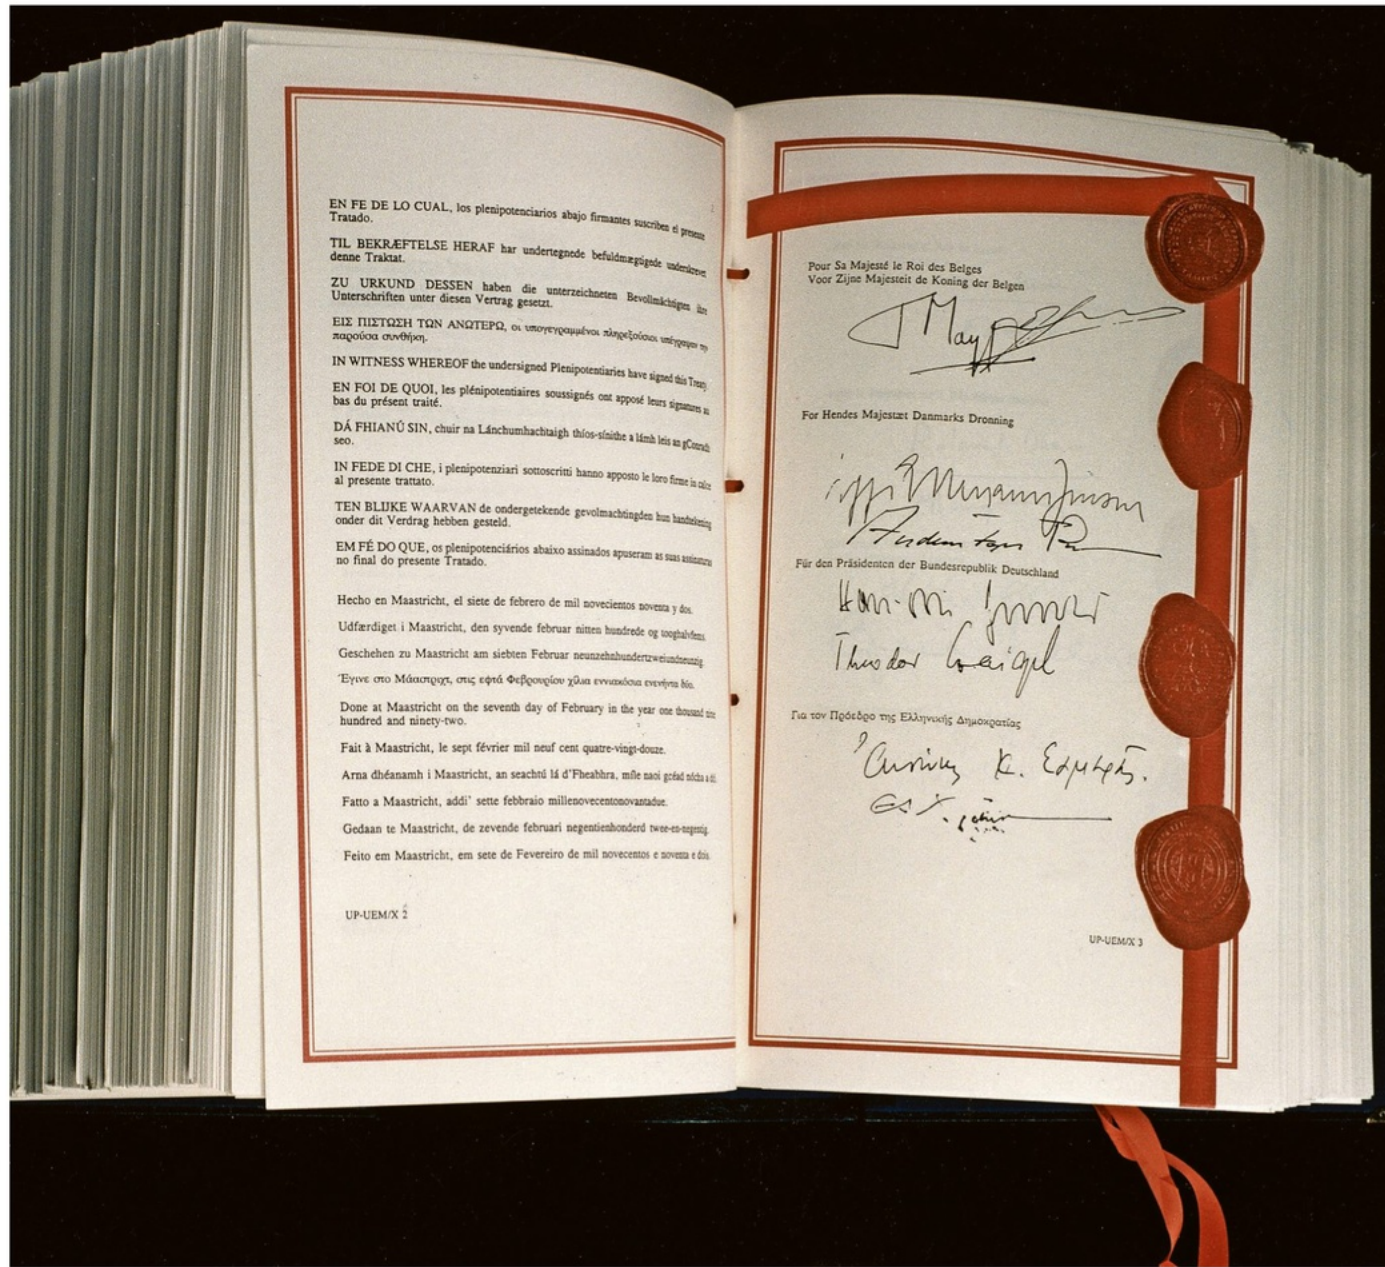 EN FE DE LO CUAL, los plenipotenciarios abajo firmantes suscriben el presente
Tratado.
TIL BEKRÆFTELSE HERAF har undertegnede befuldmægtigede underskrevet
denne Traktat.
ZU URKUND DESSEN haben die unterzeichneten Bevollmächtigten ihre
Unterschriften unter diesen Vertrag gesetzt.
ΕΙΣ ΠΙΣΤΩΣΗ ΤΩΝ ΑΝΩΤΕΡΩ, οι υπογεγραμμένοι πληρεξούσιοι υπέγραψαν την
παρούσα συνθήκη.
IN WITNESS WHEREOF the undersigned Plenipotentiaries have signed this Treaty.
EN FOI DE QUOI, les plénipotentiaires soussignés ont apposé leurs signatures au
bas du présent traité.
DÁ FHIANÚ SIN, chuir na Lánchumhachtaigh thíos-sínithe a lámh leis an gConradh
seo.
IN FEDE DI CHE, i plenipotenziari sottoscritti hanno apposto le loro firme in calce
al presente trattato.
TEN BLIJKE WAARVAN de ondergetekende gevolmachtingden hun handtekening
onder dit Verdrag hebben gesteld.
EM FÉ DO QUE, os plenipotenciários abaixo assinados apuseram as suas assinaturas
no final do presente Tratado.
Hecho en Maastricht, el siete de febrero de mil novecientos noventa y dos.
Udfærdiget i Maastricht, den syvende februar nitten hundrede og tooghalvfems.
Geschehen zu Maastricht am siebten Februar neunzehnhundertzweiundneunzig.
Έγινε στο Μάαστριχτ, στις εφτά Φεβρουρίου χίλια εννιακόσια ενενήντα δύο.
Done at Maastricht on the seventh day of February in the year one thousand nine
hundred and ninety-two.
Fait à Maastricht, le sept février mil neuf cent quatre-vingt-douze.
Arna dhéanamh i Maastricht, an seachtú lá d'Fheabhra, míle naoi gcéad nócha a dó.
Fatto a Maastricht, addi' sette febbraio millenovecentonovantadue.
Gedaan te Maastricht, de zevende februari negentienhonderd twee-en-negentig.
Feito em Maastricht, em sete de Fevereiro de mil novecentos e noventa e dois.
UP-UEM/X 2
Pour Sa Majesté le Roi des Belges
Voor Zijne Majesteit de Koning der Belgen
For Hendes Majestæt Danmarks Dronning
Für den Präsidenten der Bundesrepublik Deutschland
Theodor Waigel
Για τον Πρόεδρο της Ελληνικής Δημοκρατίας
UP-UEM/X 3